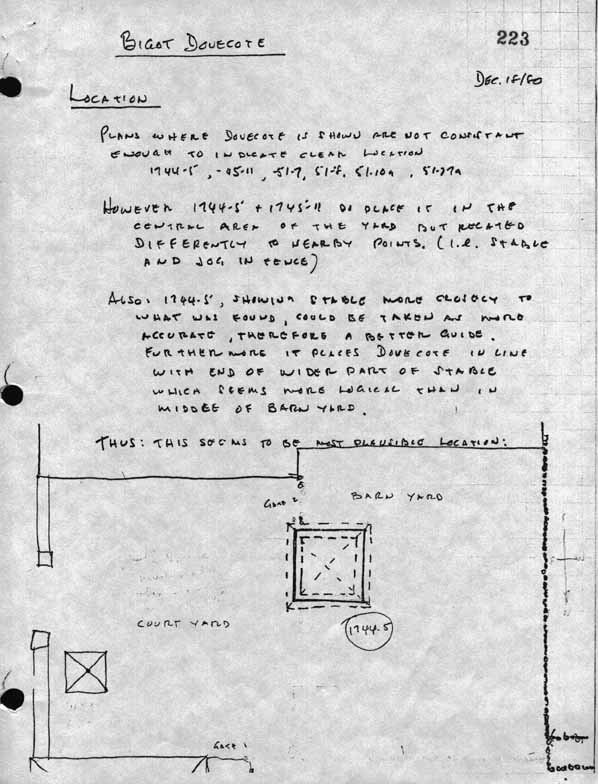 BIGOT DOVECOTE
223
DEC. 18/80
LOCATION
PLANS WHERE DOVECOTE IS SHOWN ARE NOT CONSISTANT
ENOUGH TO INDICATE CLEAR LOCATION
1744-5, -45-11, 51-7, 51-8, 51-10a, 51-27a
HOWEVER 1744-5 + 1745-11 DO PLACE IT IN THE
CENTRAL AREA OF THE YARD BUT RELATED
DIFFERENTLY TO NEARBY POINTS. (I.E. STABLE
AND JOG IN FENCE)
ALSO: 1744-5, SHOWING STABLE MORE CLOSELY TO
WHAT WAS FOUND, COULD BE TAKEN AS MORE
ACCURATE, THEREFORE A BETTER GUIDE.
FURTHERMORE IT PLACES DOVECOTE IN LINE
WITH END OF WIDER PART OF STABLE
WHICH SEEMS MORE LOGICAL THAN IN
MIDDLE OF BARN YARD.
THUS: THIS SEEMS TO BE MOST PLAUSIBLE LOCATION:
GATE 2
BARN YARD
COURT YARD
1744-5
GATE 1